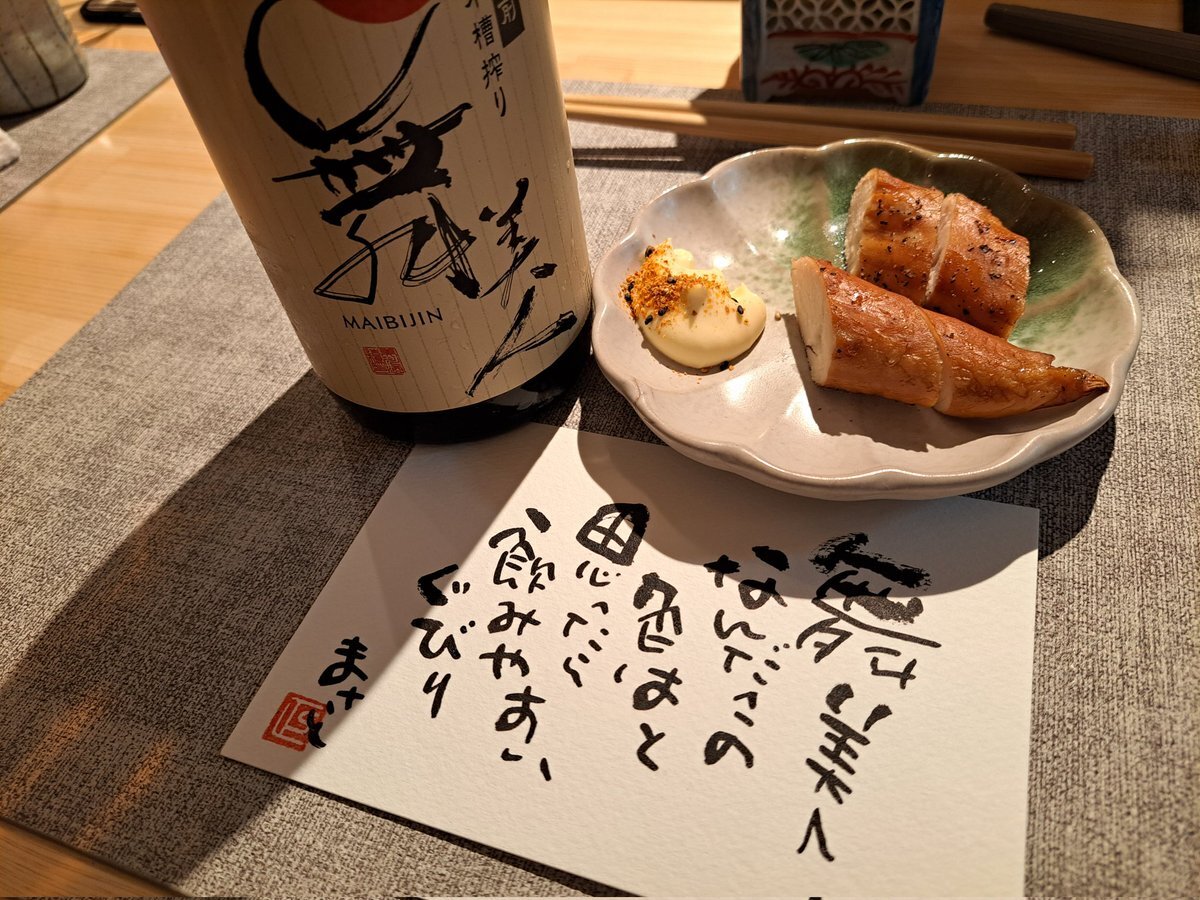 槽搾り
舞美人
MAIBIJIN
舞は美人
なんでこの
はと
思ったら
飲みやすい
ぐびり
まさと